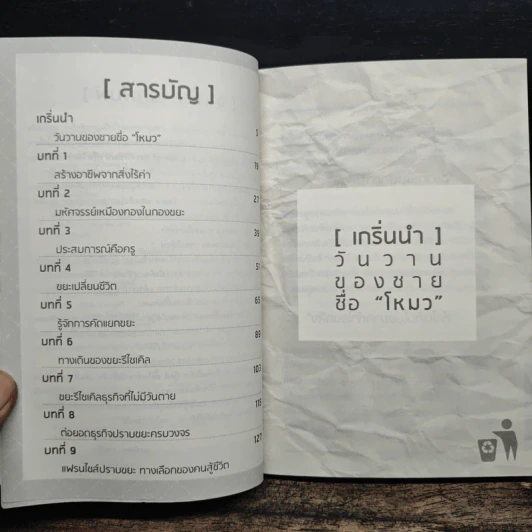 [ สารบัญ ]
เกริ่นนำ
วันวานของชายชื่อ “โหมว” 5
บทที่ 1
สร้างอาชีพจากสิ่งไร้ค่า 19
บทที่ 2
มหัศจรรย์เหมืองทองในกองขยะ 21
บทที่ 3
ประสบการณ์คือครู 39
บทที่ 4
ขยะเปลี่ยนชีวิต 51
บทที่ 5
รู้จักการคัดแยกขยะ 65
บทที่ 6
ทางเดินของขยะรีไซเคิล 89
บทที่ 7
ขยะรีไซเคิลธุรกิจที่ไม่มีวันตาย 103
บทที่ 8 115
ต่อยอดธุรกิจปราบขยะครบวงจร 127
บทที่ 9
แฟรนไชส์ปราบขยะ ทางเลือกของคนสู้ชีวิต
[ เกริ่นนำ ]
วันวาน
ของชาย
ชื่อ “โหมว”